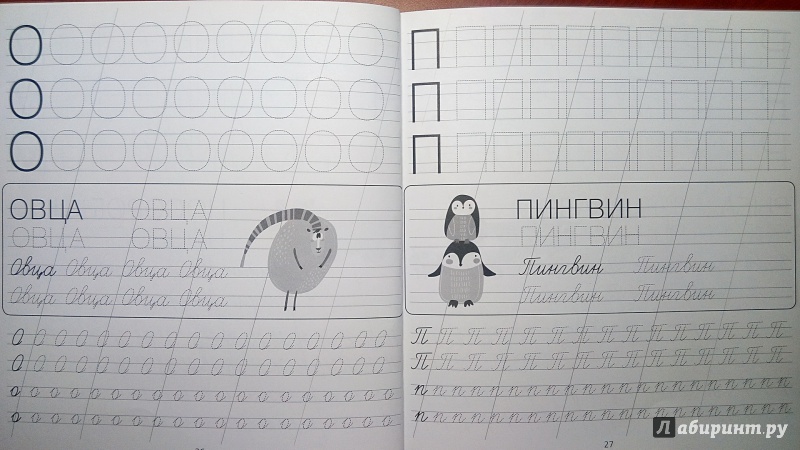 О О О О О О О О О
О О О О О О О О О
О О О О О О О О О
ОВЦА ОВЦА
ОВЦА ОВЦА
Овца Овца Овца Овца
Овца Овца Овца Овца
О О О О О О О О О О О О О О О О О О
О О О О О О О О О О О О О О О О О О
о о о о о о о о о о о о о о о о о о
о о о о о о о о о о о о о о о о о о
П П П П П П П П П П
П П П П П П П П П П
П П П П П П П П П П
ПИНГВИН
ПИНГВИН
Пингвин Пингвин
Пингвин Пингвин
П П П П П П П П П П П П П П
П П П П П П П П П П П П П П
п п п п п п п п п п п п п п п п п п п п
п п п п п п п п п п п п п п п п п п п п
27
Лабиринт.ру